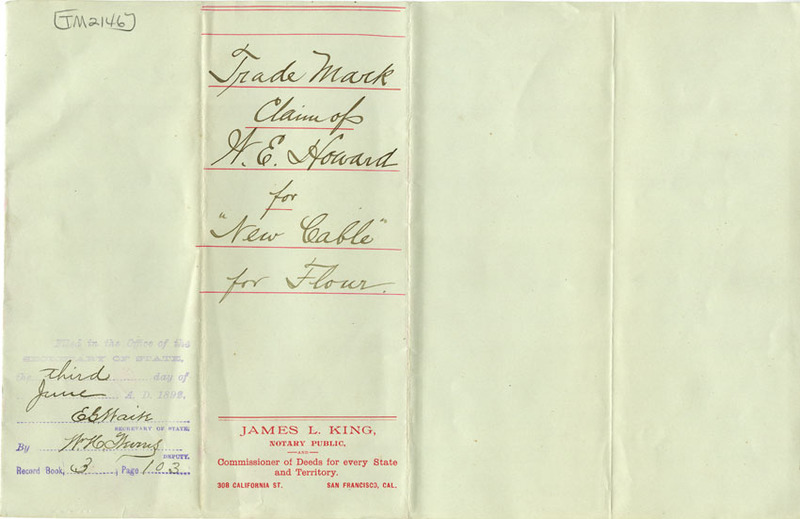 [TM2146]
Trade Mark
Claim of
W. E. Howard
for
"New Cable"
for Flour.
Filed in the Office of the
SECRETARY OF STATE,
the third day of
June A. D. 1892.
E G Waite
SECRETARY OF STATE.
By
DEPUTY.
Record Book, 3, Page 103
JAMES L. KING,
NOTARY PUBLIC,
AND
Commissioner of Deeds for every State
and Territory.
308 CALIFORNIA ST. SAN FRANCISCO, CAL.